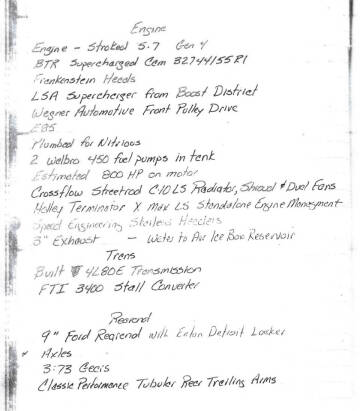 Engine
Engine - Stroked 5.7 Gen 4
BTR Supercharged Cam 32744155R1
Frankenstein Heads
LSA Supercharger from Boost District
Wegner Automotive Front Pulley Drive
E85
Plumbed for Nitrious
2 Welbro 450 fuel pumps in tank
Estimated 800 HP on motor
Crossflow Streetrod C-10 LS Radiator, Shroud & Dual Fans
Holley Terminator X Max LS Standalone Engine Managment
Speed Engineering Stainless Headers
3" Exhaust - Water to Air Ice Box Reservoir
Trans
Built 4L80E Transmission
FTI 3400 Stall Converter
Rearend
9" Ford Rearend with Eaton Detroit Locker
Axles
3:73 Gears
Classic Performance Tubular Rear Trailing Arms